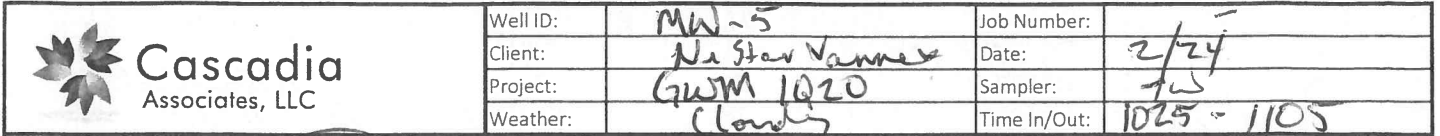 Cascadia
Associates, LLC
Well ID: MW-5 Job Number: -
Client: NuStar Vannex Date: 2/24
Project: GWM 1Q20 Sampler:
Weather: Cloudy Time In/Out: 1025 - 1105